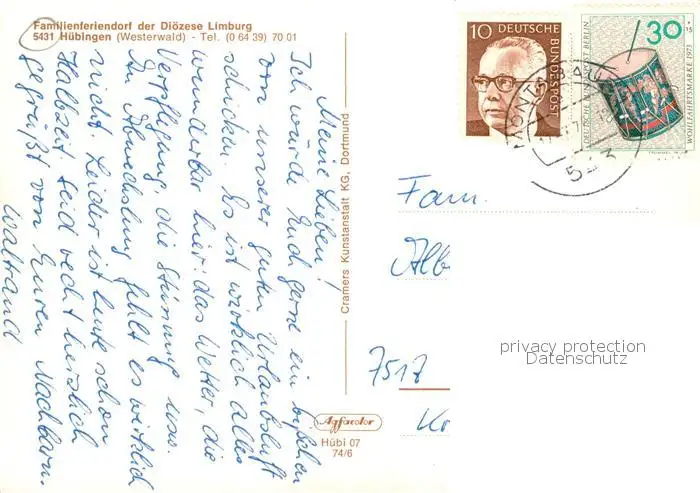 Familienferiendorf der Diözese Limburg
5431 Hübingen (Westerwald) - Tel. (0 64 39) 70 01
Meine Lieben!
Ich würde Euch gerne ein bißchen
von unserer guten Urlaubsluft
schicken. Es ist wirklich alles
wunderbar hier: das Wetter, die
Verpflegung, die Stimmung usw.
An Abwechslung fehlt es wirklich
nicht. Leider ist heute schon
Halbzeit. Seid recht herzlich
gegrüßt von Euren Nachbarn.
Waltraud
Cramers Kunstanstalt KG, Dortmund
Agfacolor
Hübi 07
74/6
10 DEUTSCHE
BUNDESPOST
30
+15
DEUTSCHE BUNDESPOST BERLIN
WOHLFAHRTSMARKE 1973
MONTABAUR
543
Fam.
Alb
7517
Kr
privacy protection
Datenschutz